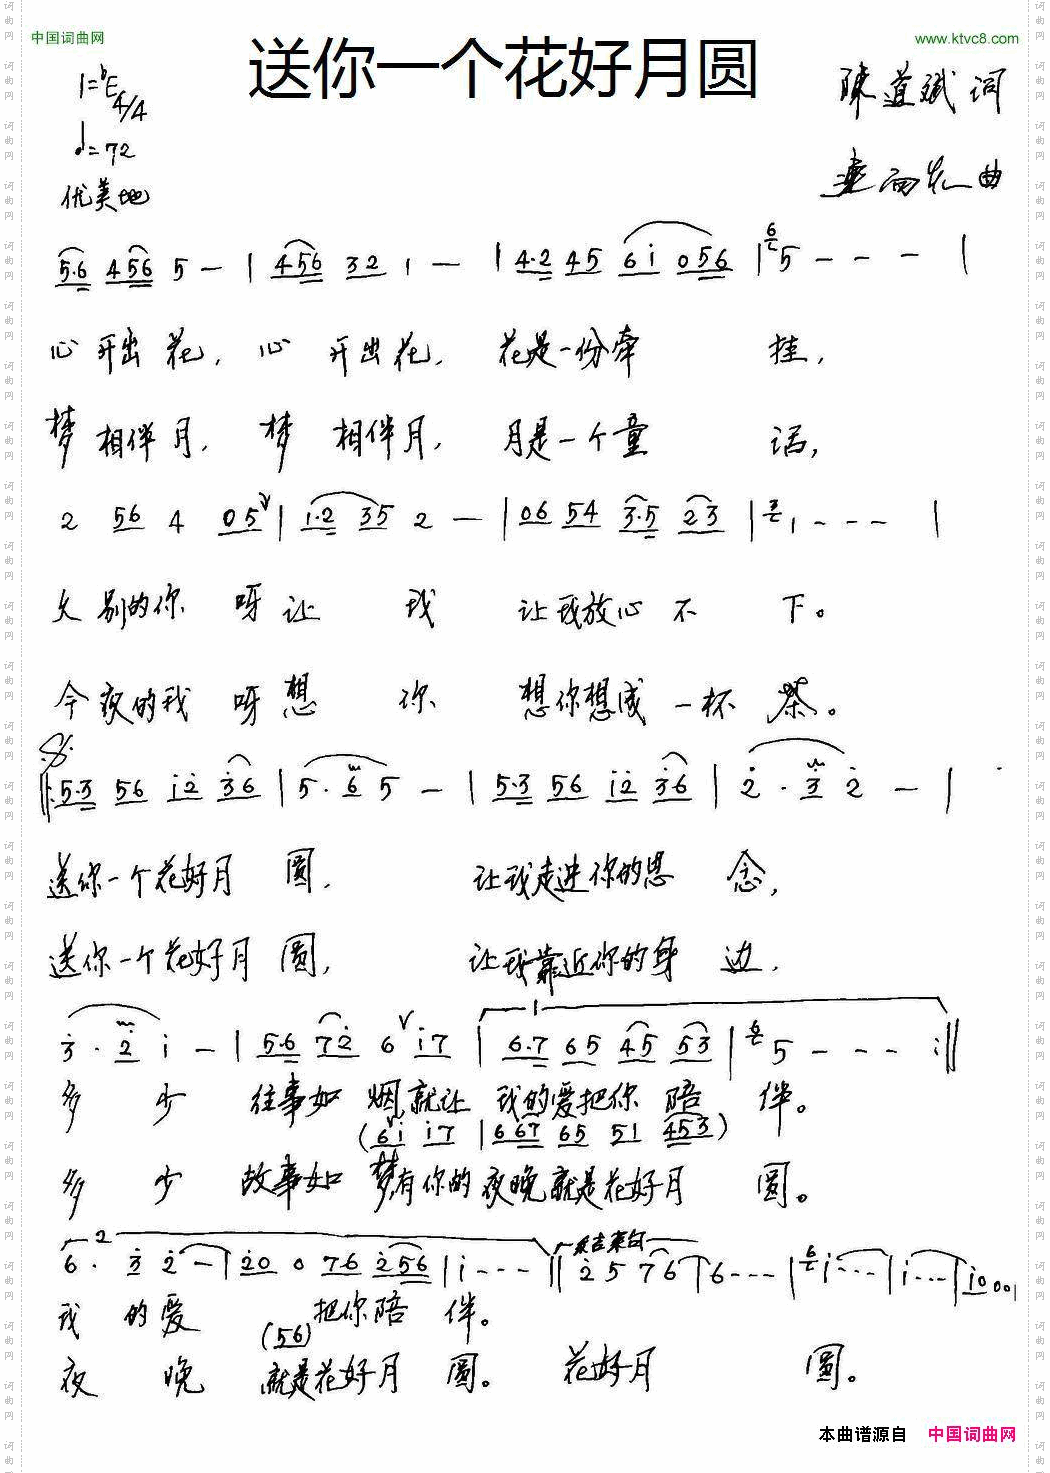 中国词曲网
www.ktvc8.com
送你一个花好月圆
1=♭E 4/4
陈道斌 词
♩=72
曲
优美地
5·6 456 5 — | 456 32 1 — | 4·2 45 6i 056 | 5 — — — |
心开出花，心开出花，花是一份牵挂，
梦相伴月，梦相伴月，月是一个童话，
2 56 4 05 | i·2 35 2 — | 06 54 3·5 23 | 1 - - - |
久别的你呀让我让我放心不下。
今夜的我呀想你想你想成一杯茶。
5·3 56 i2 36 | 5 · 6 5 — | 5·3 56 i2 36 | 2 · 3 2 — |
送你一个花好月圆，让我走进你的思念，
送你一个花好月圆，让我靠近你的身边，
3 · 2 i — | 5·6 72 6 i7 | 6·7 65 45 53 | 5 — — — :||
多少往事如烟，就让我的爱把你陪伴。
(6i i7 | 667 65 51 453)
多少故事如梦，有你的夜晚就是花好月圆。
6 · 3 2 — | 20 0 76 256 | i - - - || 2 5 76 | 6 - - - | i - - - | i - - - | i0 0 0 |
我的爱把你陪伴。
(56)
夜晚就是花好月圆。花好月圆。
本曲谱源自 中国词曲网